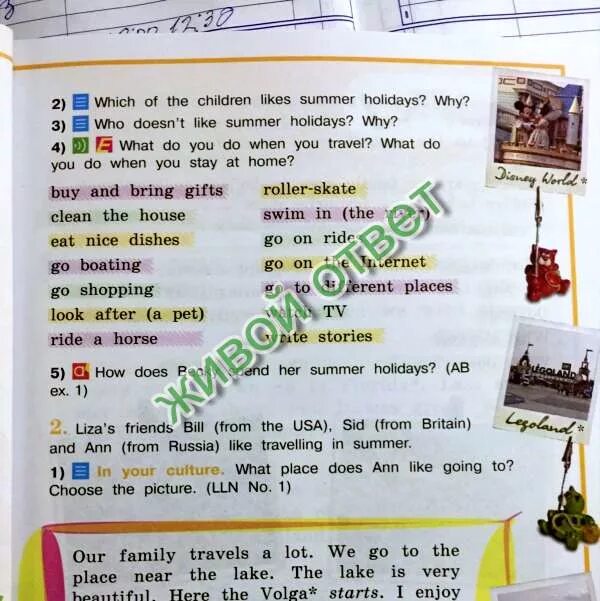 12:30
2) Which of the children likes summer holidays? Why?
3) Who doesn't like summer holidays? Why?
4) What do you do when you travel? What do
you do when you stay at home?
buy and bring gifts roller-skate
clean the house swim in (the
eat nice dishes go on
go boating go on the Internet
go shopping go to different places
look after (a pet) watch TV
ride a horse write stories
5) How does Becky spend her summer holidays? (AB
ex. 1)
2. Liza's friends Bill (from the USA), Sid (from Britain)
and Ann (from Russia) like travelling in summer.
1) In your culture. What place does Ann like going to?
Choose the picture. (LLN No. 1)
Our family travels a lot. We go to the
place near the lake. The lake is very
beautiful. Here the Volga* starts. I enjoy
Disney World*
LEGOLAND
Legoland*
ЖИВОЙ ОТВЕТ